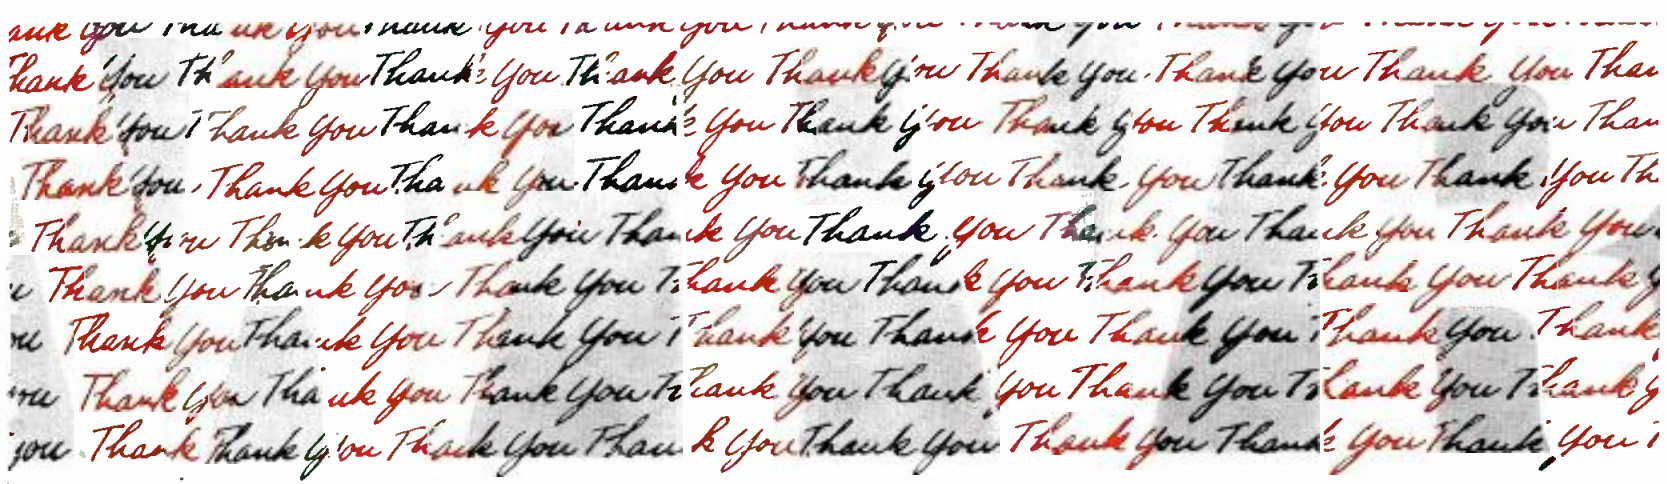 ank you Thank you Thank you Thank you Thank you Thank you Thank
Thank you Thank you Thank you Thank you Thank you Thank you Thank you Thank you Than
Thank you Thank you Thank you Thank you Thank you Thank you Thank you Thank you Than
Thank you Thank you Tha nk you Thank you Thank you Thank you Thank you Thank you Th
Thank you Thank you Thank you Thank you Thank you Thank you Thank you Thank you
u Thank you Thank you Thank you Thank you Thank you Thank you Thank you Thank y
ou Thank you Thank you Thank you Thank you Thank you Thank you Thank you Thank
you Thank you Thank you Thank you Thank you Thank you Thank you Thank you Thank y
you Thank Thank you Thank you Thank you Thank you Thank you Thank you Thank you